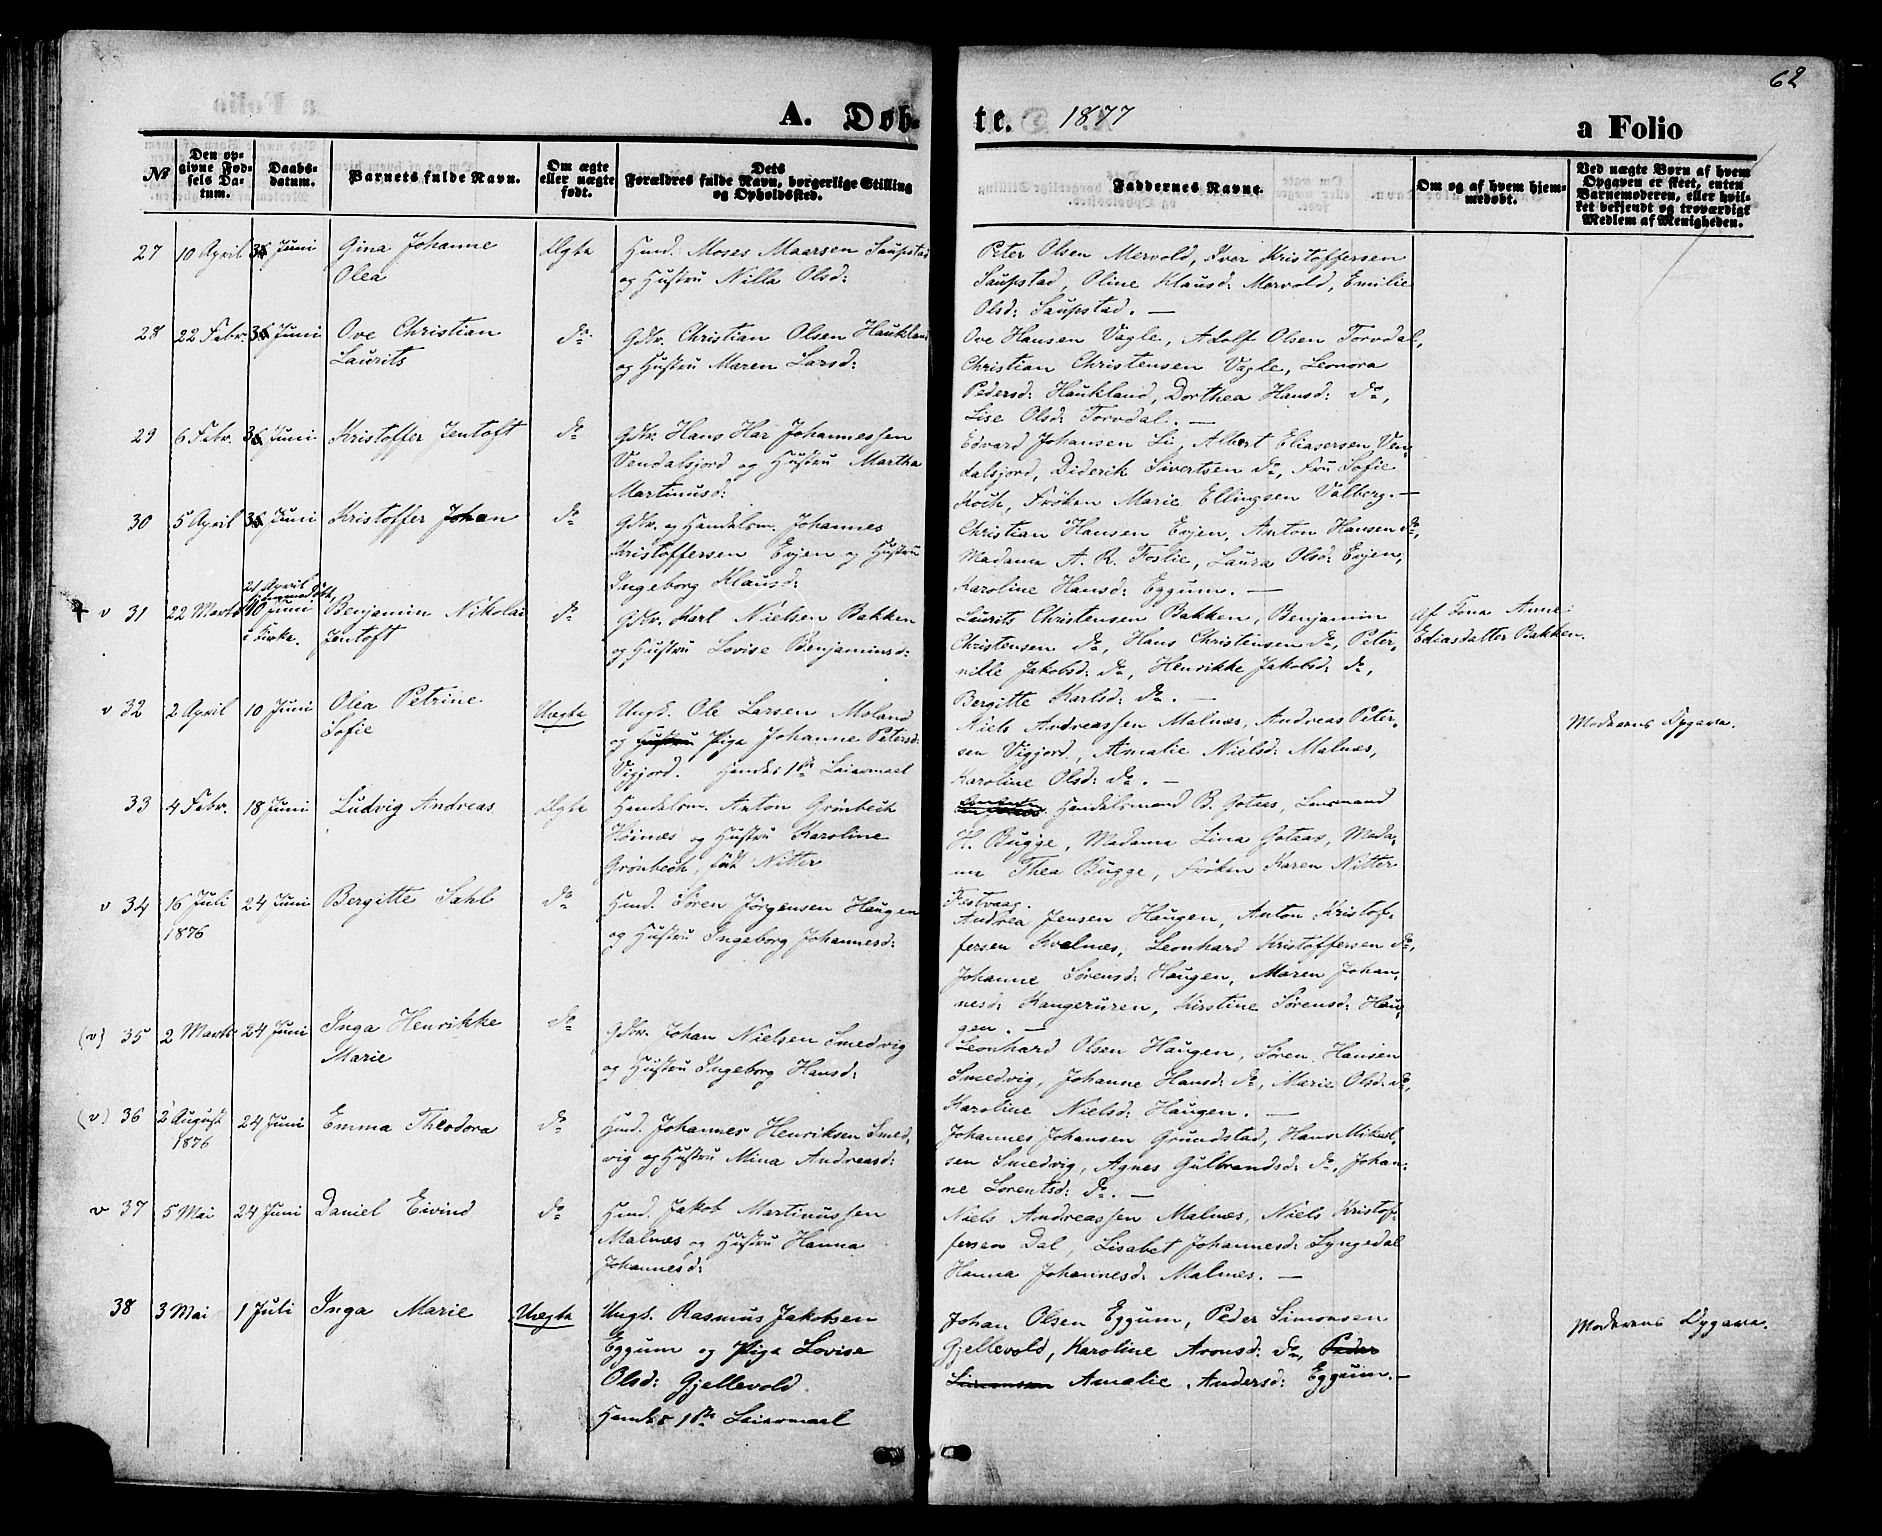 62
A. Døb- te. 1877 a Folio
No
Den opgivne Fødsels Datum.
Daabsdatum.
Barnets fulde Navn.
Om ægte eller uægte født.
Dets Forældres fulde Navn, borgerlige Stilling og Opholdssted.
Faddernes Navne.
Om og af hvem hjemmedøbt.
Ved uægte Børn af hvem Opgaven er skeet, enten Barnemoderen, eller hvilket bekjendt og troværdigt Medlem af Menigheden.
27 10 April Juni Gina Johanne Ægte Hmd. Moses Maarsen Saupstad Peter Olsen Mervold, Iver Kristoffersen
Olea og Hustru Nilla Olsd: Saupstad, Oline Klausd: Mervold, Emilie
Olsd: Saupstad. —
28 22 Febr. Juni Ove Christian do Gdbr. Christian Olsen Haukland Ove Hansen Vagle, Adolf Olsen Torvdal,
Laurits og Hustru Maren Larsd: Christian Christensen Vagle, Leonora
Pedersd: Haukland, Dorthea Hansd: do,
Lise Olsd: Torvdal. —
29 6 Febr. Juni Kristoffer Jentoft do Gdbr. Hans Har Johannessen Edvard Johansen Li, Albert Eliasersen Ven-
Vendalsjord og Hustru Martha dalsjord, Diderik Sivertsen do, Fru Sofie
Martinusd: Koch, Frøken Marie Ellingsen Valberg. —
30 5 April Juni Kristoffer Johan do Gdbr. og Handelsm. Johannes Christian Hansen Evjen, Anton Hansen do,
Kristoffersen Evjen og Hustru Madama A. R. Foslie, Laura Olsd: Evjen,
Ingeborg Klausd: Karoline Hansd: Eggum. —
21 April hjemmedøbt,
v 31 22 Marts 10 Juni Benjamin Nikolai do Gdbr. Karl Nielsen Bakken Laurits Christensen Bakken, Benjamin Af Kona Anne
i Kirke. Jentoft og Hustru Lovise Benjaminsd: Christensen do, Hans Christensen do, Peter- Ediasdatter Bakken.
nille Jakobsd: do, Henrikke Jakobsd: do,
Bergitte Karlsd: do. —
v 32 2 April 10 Juni Olea Petrine Uægte Ungk. Ole Larsen Moland Niels Andreassen Malnes, Andreas Peter- Moderens Opgave.
Sofie og Hustru Pige Johanne Petersd: sen Vigjord, Amalie Nielsd: Malnes,
Vigjord. Hendes 1ste Leiermaal Karoline Olsd: do. —
33 4 Febr. 18 Juni Ludvig Andreas Ægte Handelsm. Anton Grønbech Handelsmand B. Gotaas, Lensmand
Høinæs og Hustru Karoline H. Bugge, Madama Lina Gotaas, Mada-
Grønbech, født Nitter ma Thea Bugge, Frøken Karen Nitter
Festvaag.
v 34 16 Juli 24 Juni Bergitte Sahl do Hmd. Søren Jørgensen Haugen Andrea Jensen Haugen, Anton Kristof-
1876 og Hustru Ingeborg Johannesd: fersen Kvalnes, Leonhard Kristoffersen do,
Johanne Sørensd: Haugen, Maren Johan-
nesd: Kangeruren, Kirstine Sørensd: Hau-
gen. —
(v) 35 2 Marts 24 Juni Inga Henrikke do Gdbr. Johan Nielsen Smedvig Leonhard Olsen Haugen, Søren Hansen
Marie og Hustru Ingeborg Hansd: Smedvig, Johanne Hansd: do, Marie Olsd: do,
Karoline Nielsd: Haugen. —
(v) 36 2 August 24 Juni Emma Theodora do Hmd. Johannes Henriksen Smed- Johannes Johansen Grundstad, Hans Mikael-
1876 vig og Hustru Mina Andreasd: sen Smedvig, Agnes Gulbrandsd: do, Johan-
ne Lorentsd: do. —
v 37 5 Mai 24 Juni Daniel Eivind do Hmd. Jakob Martinussen Niels Andreassen Malnes, Niels Kristof-
Malnæs og Hustru Hanna fersen Dal, Lisabet Johannesd: Lyngedal
Johannesd: Hanna Johannesd: Malnes. —
38 3 Mai 1 Juli Inga Marie Uægte Ungk. Rasmus Jakobsen Johan Olsen Eggum, Peder Simonsen Moderens Opgave.
Eggum og Pige Lovise Gjellevold, Karoline Aronsd: do, Peder
Olsd: Gjellevold. Simonsen Amalie Andersd: Eggum. —
Hendes 1ste Leiermaal